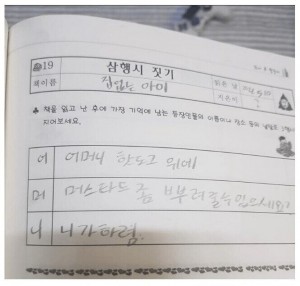 19
삼행시 짓기
책이름
집없는 아이
읽은 날
지은이
?
♣ 책을 읽고 난 후에 가장 기억에 남는 등장인물의 이름이나 장소 등의 낱말로 삼행시를
지어보세요.
어 어머니 핫도그 위에
머 머스타드 좀 뿌려줄수있으세요?
니 니가하렴.